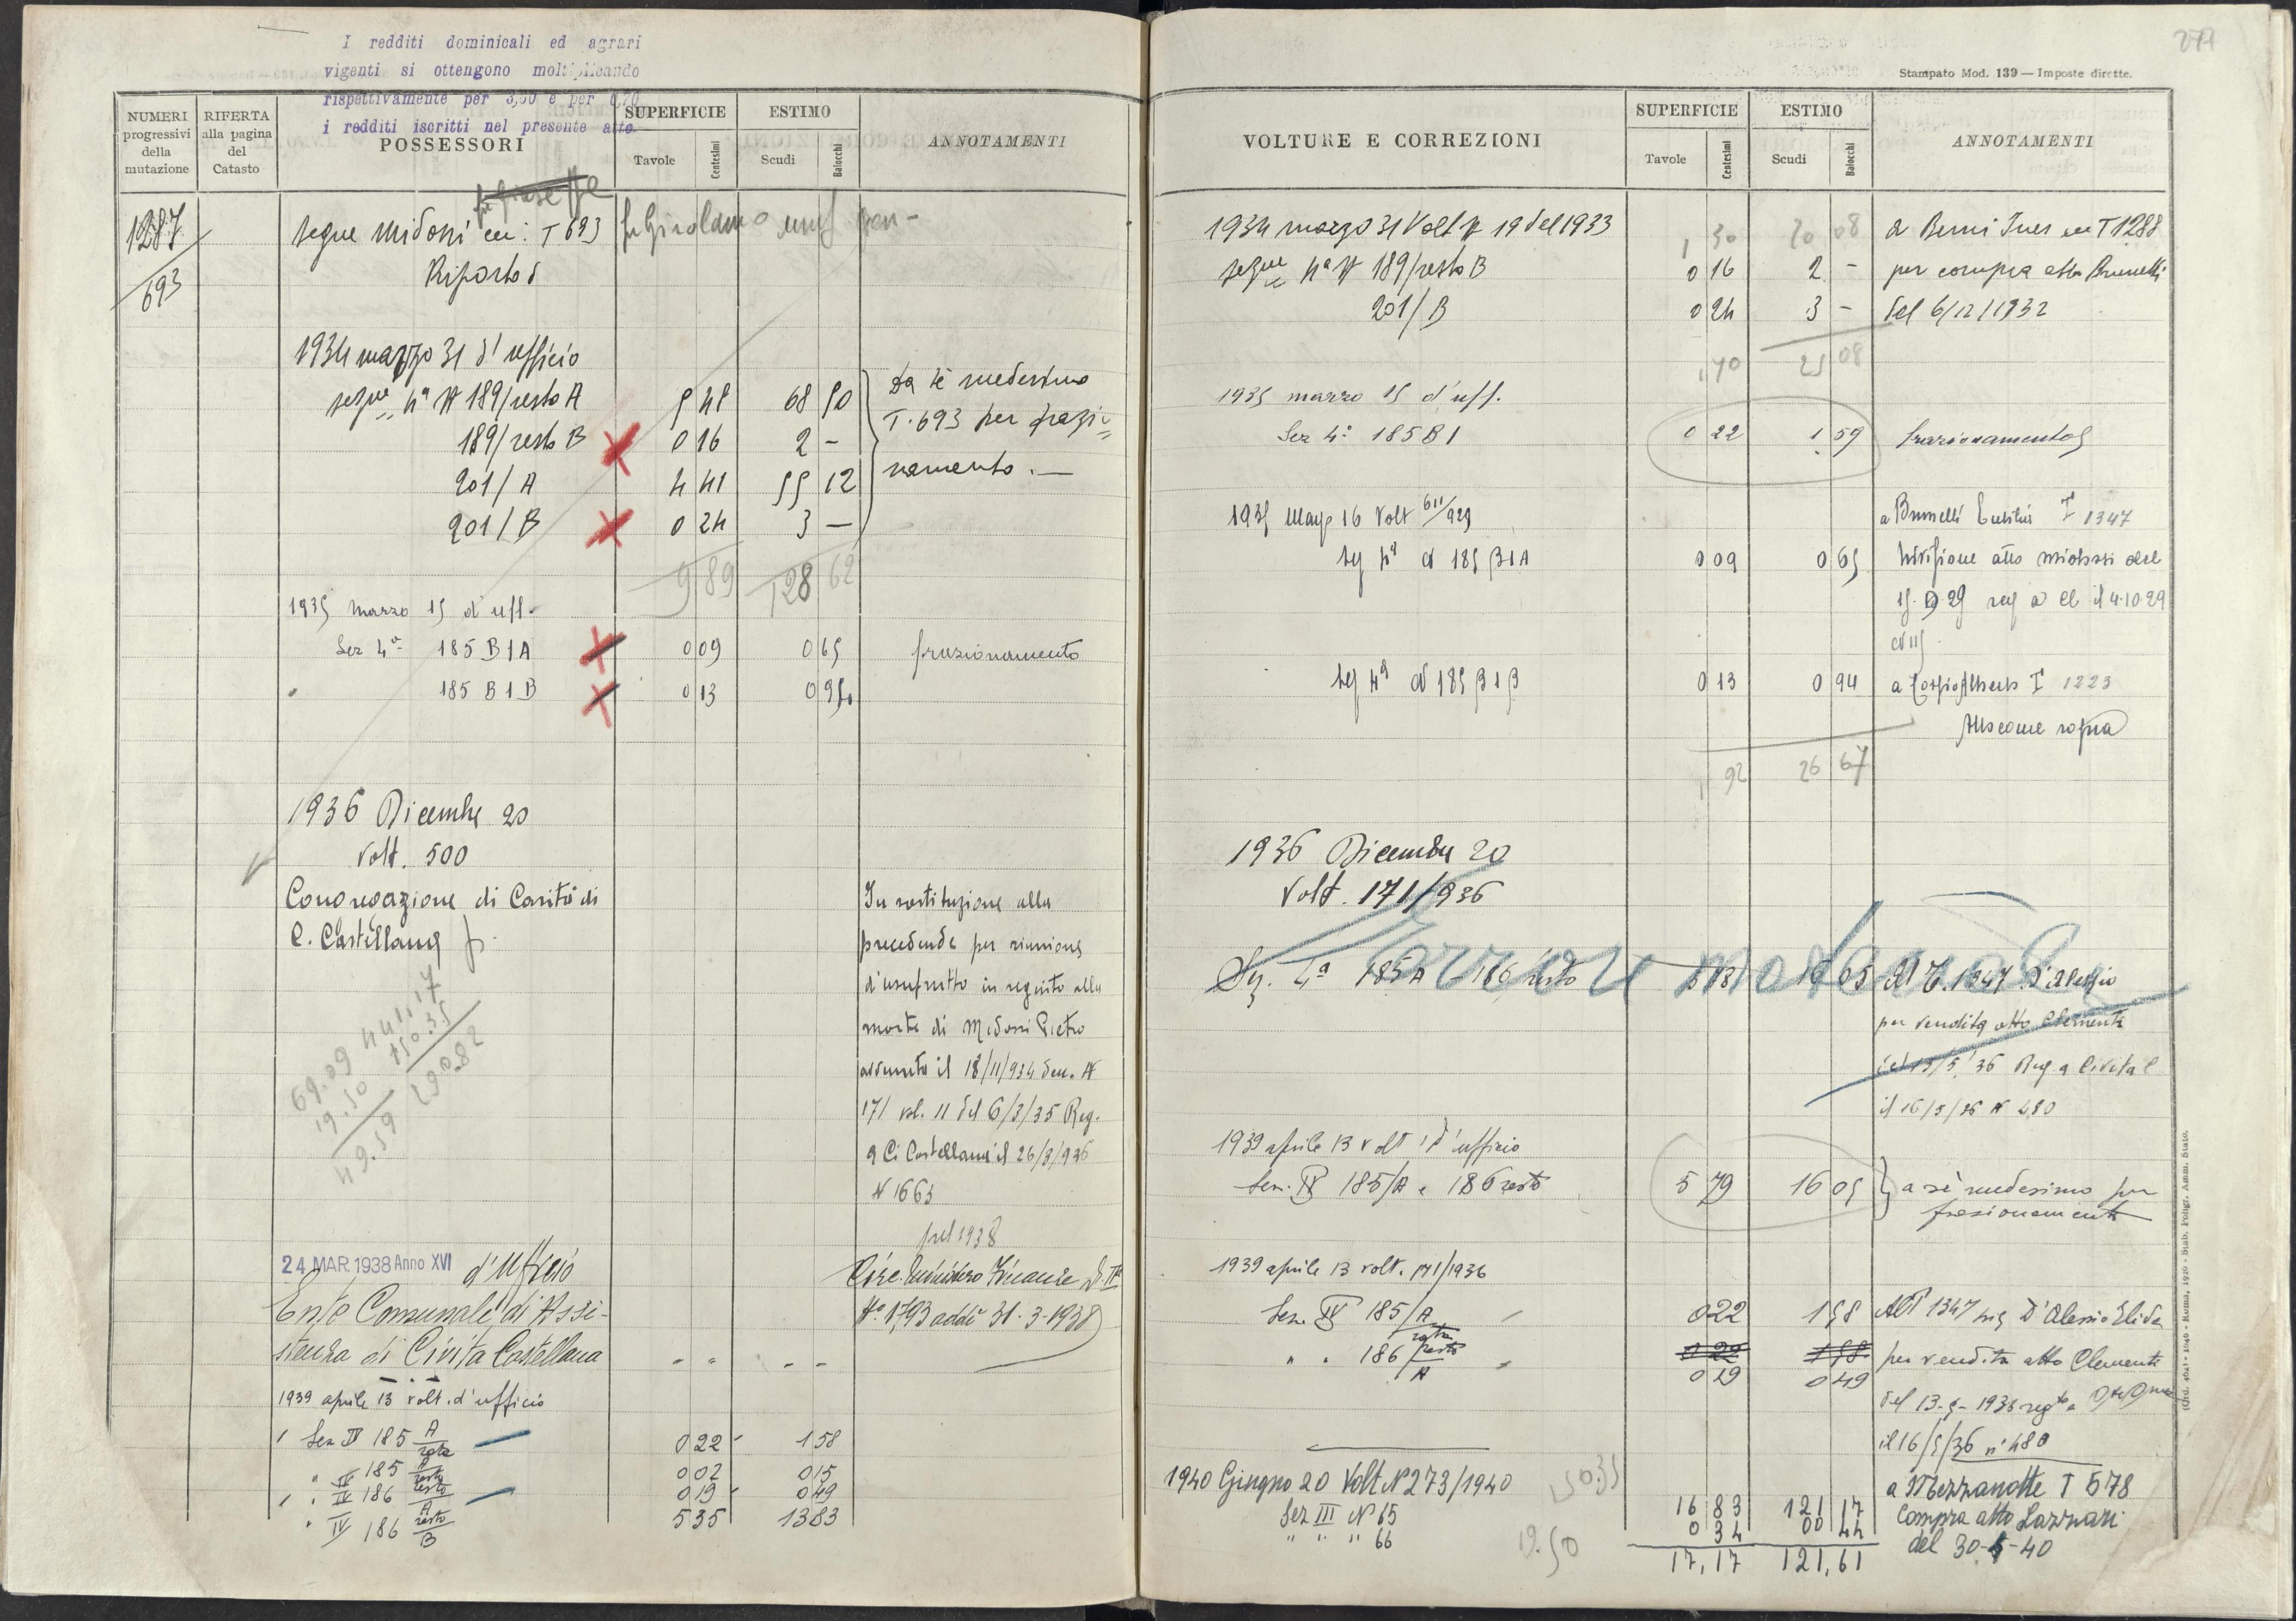 I redditi dominicali ed agrari
vigenti si ottengono moltiplicando
rispettivamente per 3,50 e per 0,70
i redditi iscritti nel presente atto.
NUMERI progressivi della mutazione
RIFERTA alla pagina del Catasto
POSSESSORI
SUPERFICIE
Tavole Centesimi
ESTIMO
Scudi Baiocchi
ANNOTAMENTI
1287
693
segue Midossi T 693 fu Girolamo
Riporto
1934 marzo 31 d'ufficio
sezne 4a N 189/resto A 68 50 Da sè medesimo
189/resto B 0 16 2 - T. 693 per frazio=
201/A 4 41 55 12 namento. —
201/B 0 24 3 —
9 89 128 62
1935 marzo 15 d'uff.
Sez 4a 185 B 1 A 0 09 0 65 frazionamento
185 B 1 B 0 13 0 95
1936 Dicembre 20
Volt. 500
Congregazione di Carità di
C. Castellana
In sostituzione alla
precedente per riunione
d'usufrutto in seguito alla
morte di Midossi Pietro
avvenuta il 18/11/934 den. N
171 vol. 11 del 6/3/35 Reg.
a C. Castellana il 26/3/936
N 1663
69.09 441.17
19.50 150.35
49.59 290.82
24 MAR 1938 Anno XVI d'Ufficio
Circ. Ministero Finanze
No 1793 addì 31-3-1938
Ente Comunale di Assi-
stenza di Civita Castellana
1939 aprile 13 volt. d'ufficio
Sez IV 185 A/rata 0 22 1 58
" IV 185 A/resto 0 02 0 15
" IV 186 resto/A 0 19 0 49
" IV 186 resto/B 5 35 13 83
277
Stampato Mod. 139 — Imposte dirette.
VOLTURE E CORREZIONI
SUPERFICIE
Tavole Centesimi
ESTIMO
Scudi Baiocchi
ANNOTAMENTI
1934 marzo 31 Volt N 19 del 1933 1 30 20 08 a Berni Ines T 1288
sezne 4a N 189/resto B 0 16 2 - per compra atto Brunelli
201/B 0 24 3 - del 6/12/1932
1,70 25 08
1935 marzo 15 d'uff.
Sez 4a 185 B 1 0 22 1 59 frazionamento
16 Volt 611/929 a Brunelli T 1347
185 B 1 A 0 09 0 65 Divisione atto Midossi del
29 reg a il 4.10.29
185 B 1 B 0 13 0 94 a Alberto T 1223
Atto come sopra
1 92 26 67
1936 Dicembre 20
Volt. 171/936
Errore materiale
Sez. 4a 185 A 186 resto 16 05 Al T. 1347 D'Alessio
per vendita atto Clementi
del 13/5/36 Reg a Civita C
il 16/5/36 N 480
1939 aprile 13 volt. d'ufficio
Sez. IV 185/A e 186 resto 5 79 16 05 a sè medesimo per
frazionamento
1939 aprile 13 volt. 171/1936
Sez. IV 185/A rata 0 22 1 58 Al T 1347 D'Alessio Elide
" " 186 resto/A 0 22 1 58 per vendita atto Clementi
0 19 0 49
del 13-5-1936
il 16/5/36 n° 480
1940 Giugno 20 Volt N 273/1940 150.35 a Mezzanotte T 578
Sez III N° 65 16 83 121 17 Compra atto Lazzari
" " " 66 0 34 00 44 del 30-5-40
19.50
17,17 121,61
(Ord. 404) - 1940 - Roma, 1929 - Stab. Poligr. Amm. Stato.